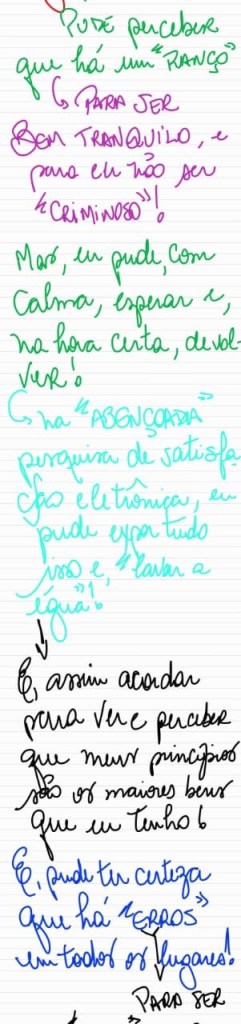 PUDE perceber
que há um "RANÇO"
↳ PARA SER
BOM TRANQUILO, e
para eu não ser
"CRIMINOSO"!
Mas, eu pude, com
Calma, esperar e,
na hora certa, devol-
VER!
↳ na "ABENÇOADA"
pesquisa de satisfa-
ção eletrônica, eu
pude expor tudo
isso e, "lavar a
égua"!
↓
E, assim acordar
para ver e perceber
que meus princípios
são os maiores bens
que eu tenho!
E, pude ter certeza
que há "ERROS"
em todos os lugares!
PARA SER